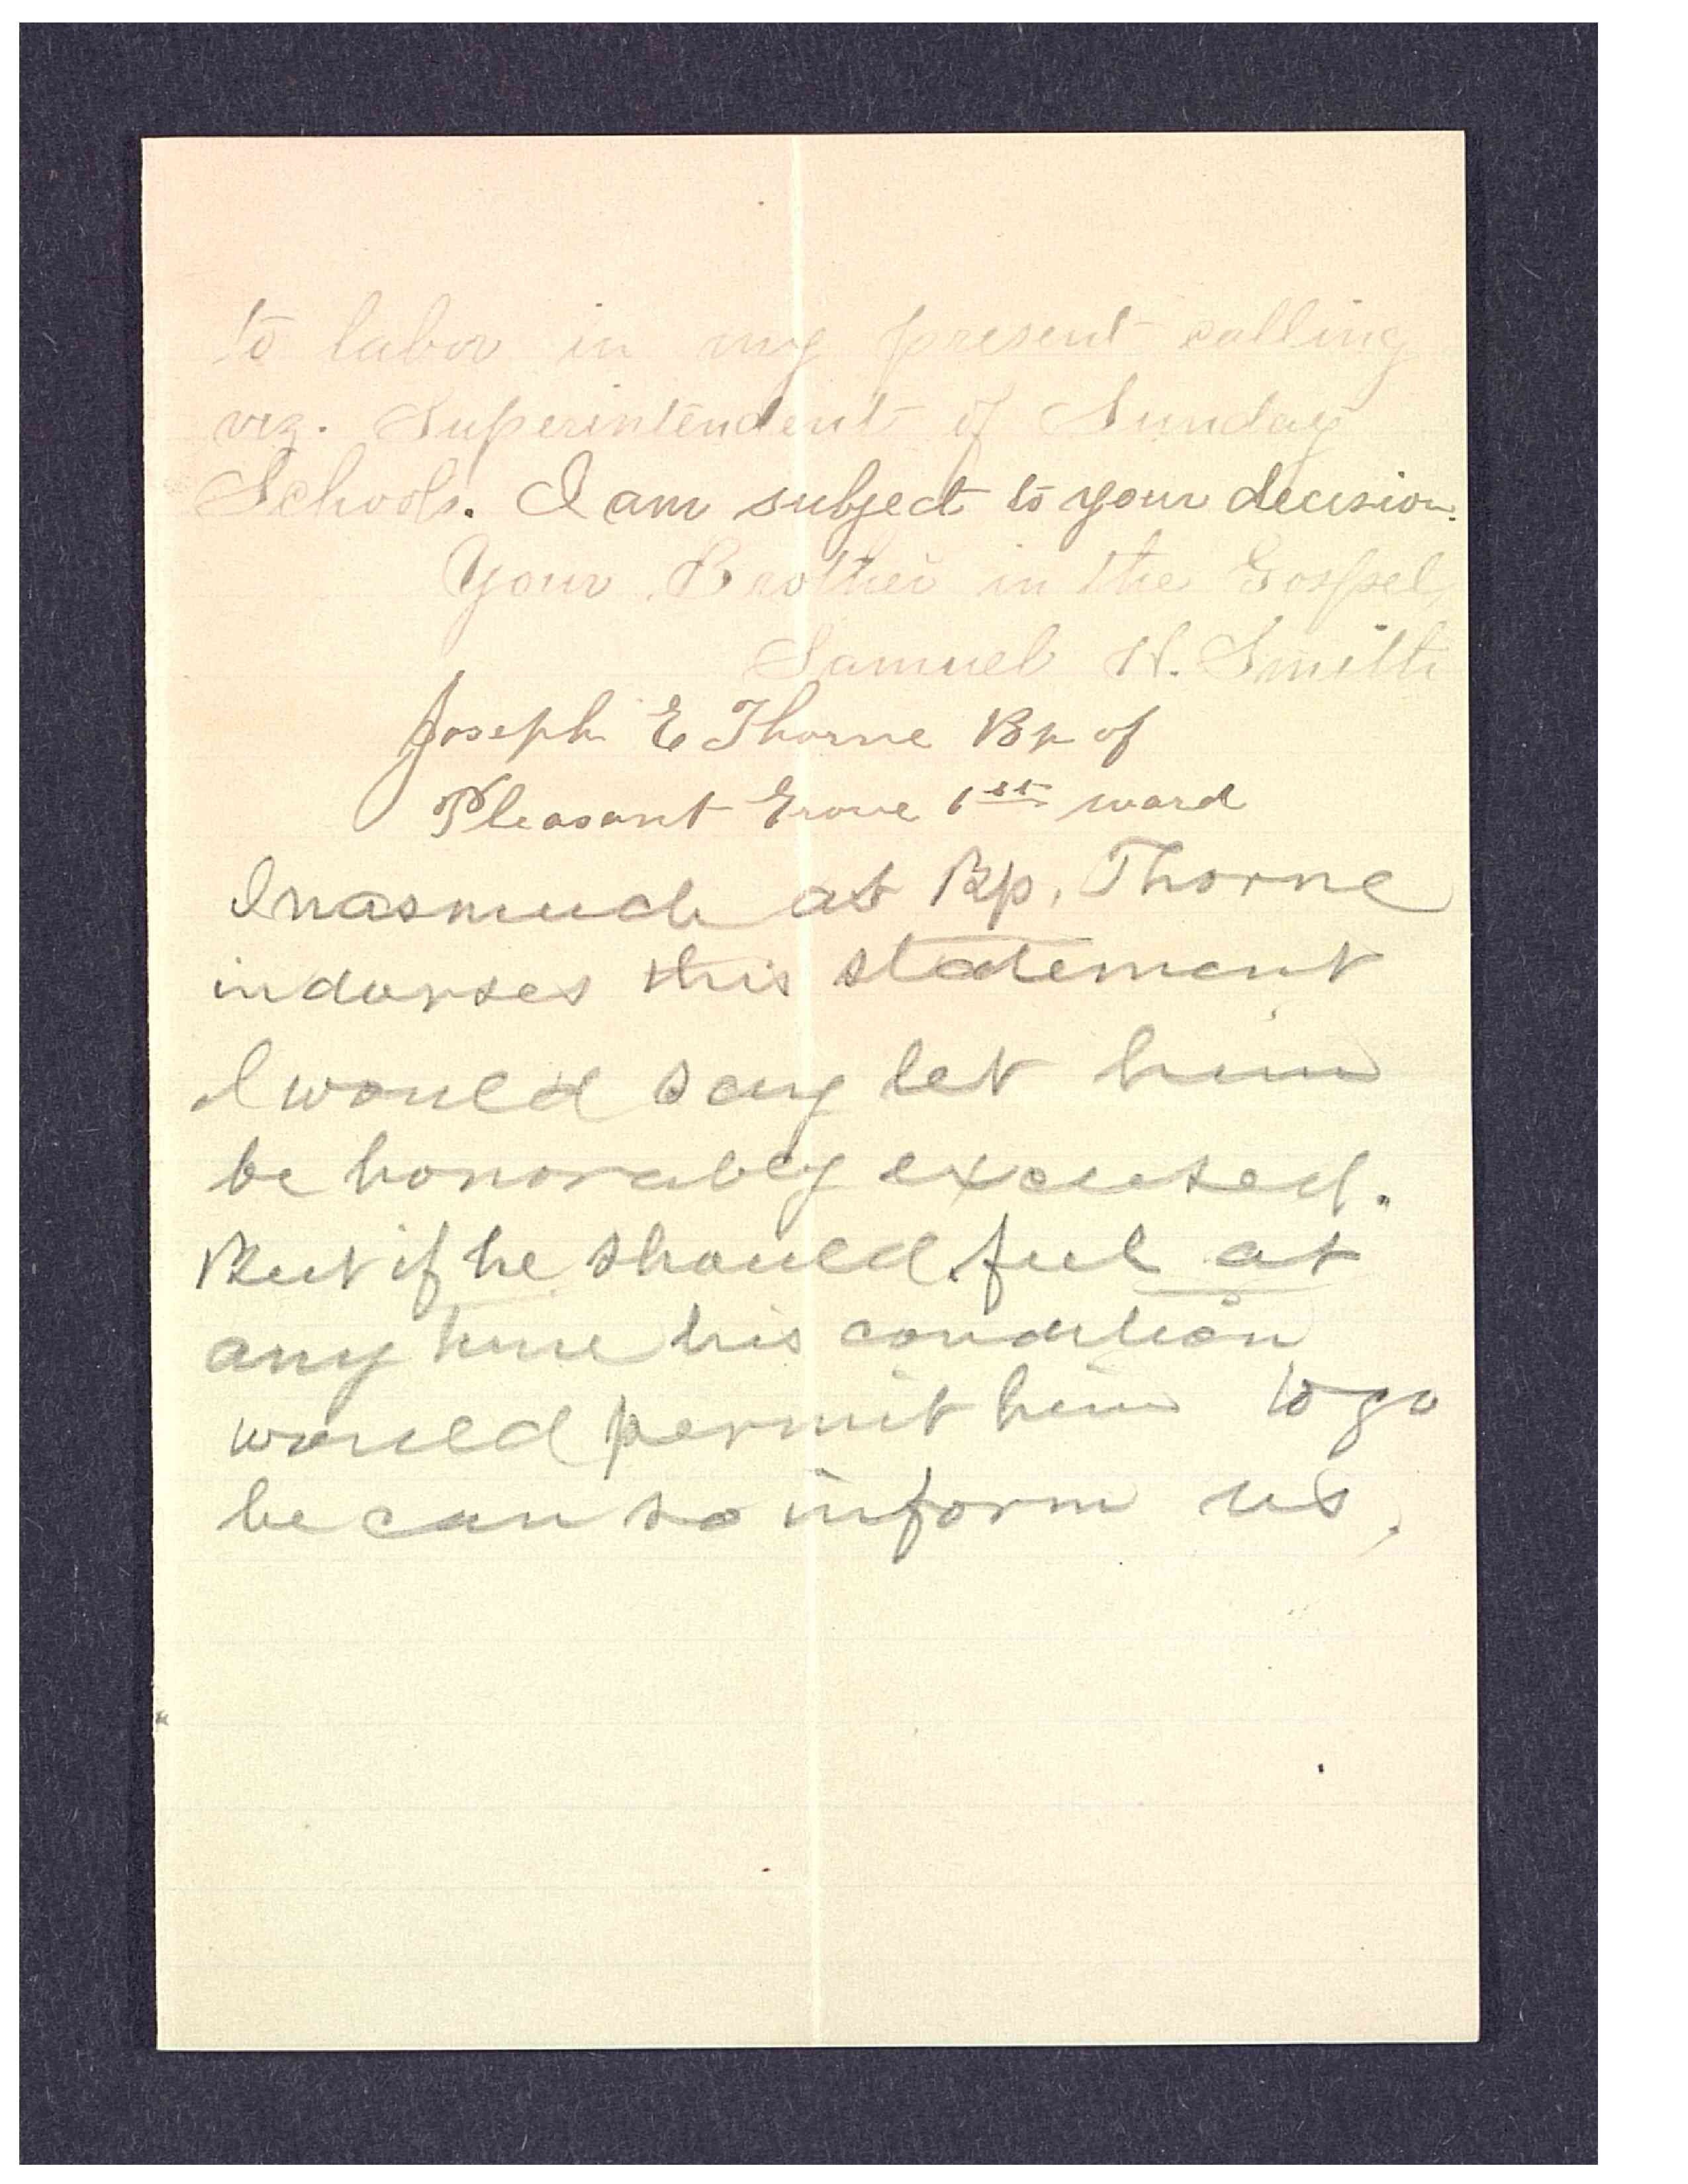 to labor in my present calling
viz. Superintendent of Sunday
Schools. I am subject to your decision.
Your Brother in the Gospel,
Samuel H. Smith
Joseph E Thorne Bp of
Pleasant Grove 1st ward
Inasmuch as Bp. Thorne
indorses this statement
I would say let him
be honorably excused.
But if he should feel at
any time his condition
would permit him to go
he can so inform us.